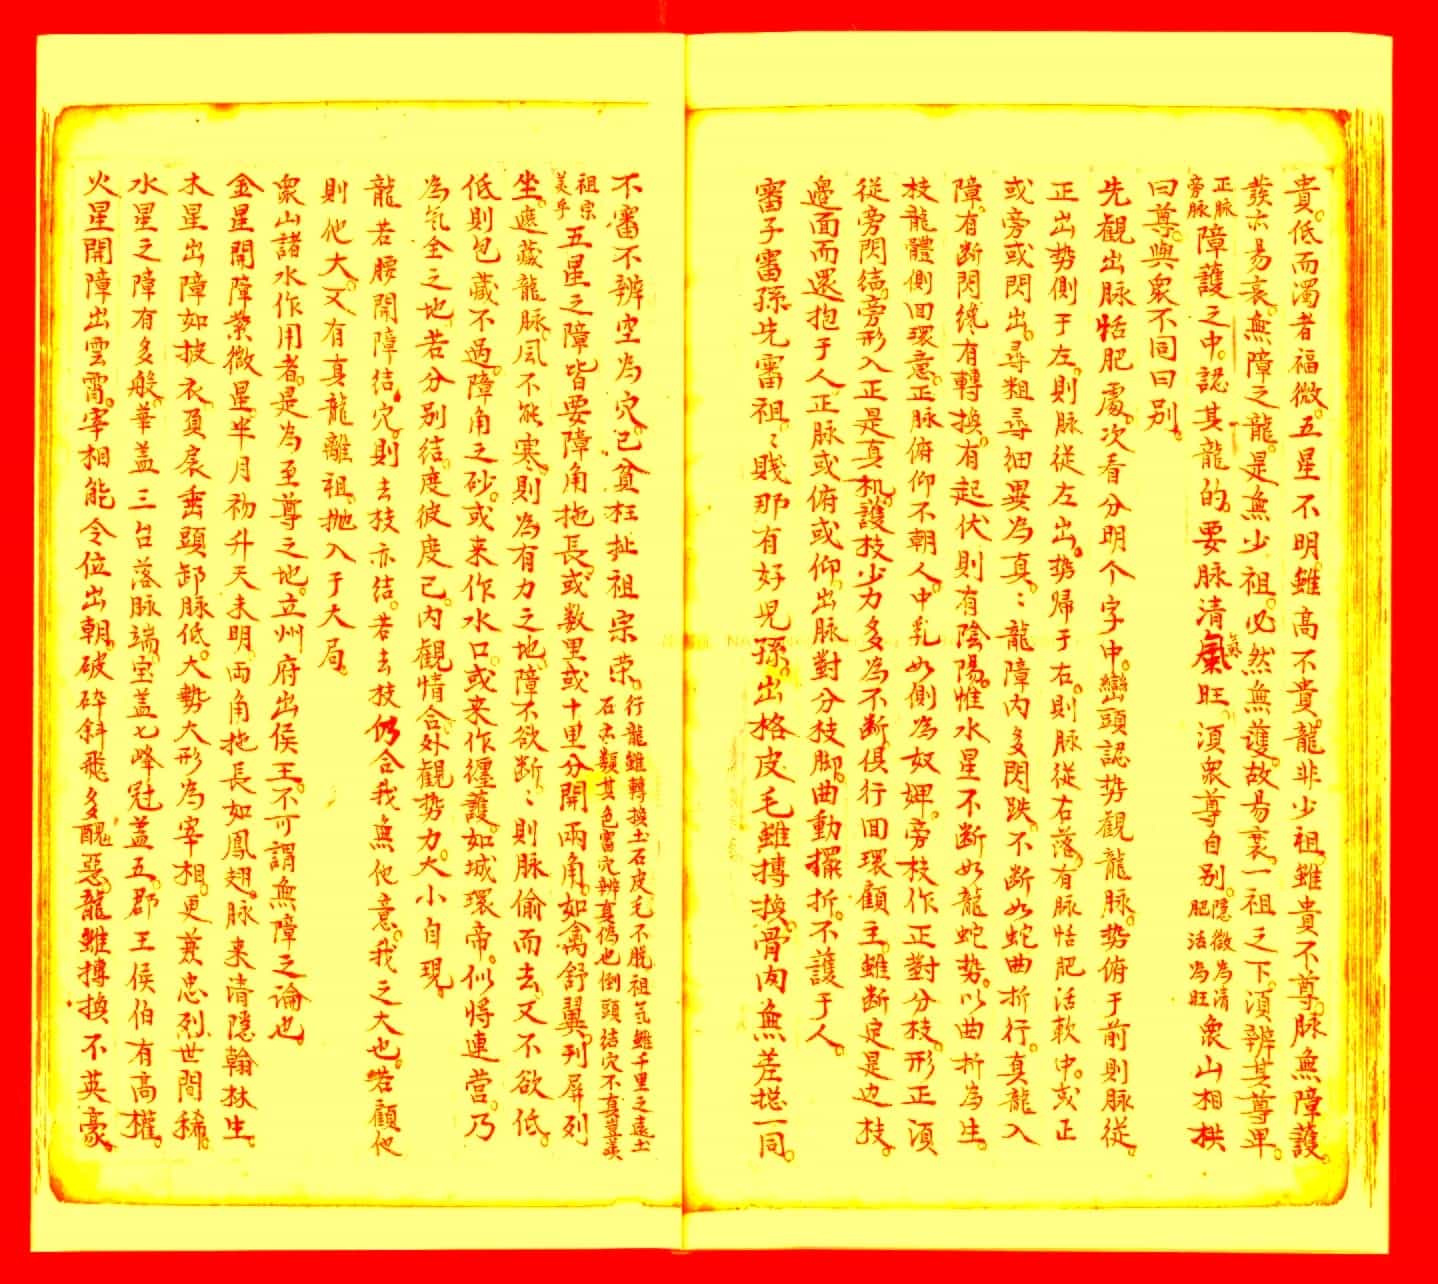 貴。低而濁者福微。五星不明。雖高不貴。龍非少祖。雖貴不尊。脉無障護。
發亦易衰。無障之龍。是無少祖。必然無護。故易衰。一祖之下。須辨其尊卑。
正脉旁脉障護之中。認其龍的。要脉清氣旺。須衆尊自別。隱微為清肥活為旺衆山相拱
曰尊。與衆不同曰別。
先觀出脉恬肥處。次看分明个字中。巒頭認势觀龍脉。势俯于前則脉從。
正出势側于左。則脉從左出。势歸于右。則脉從右落。有脉恬肥活軟中。或正
或旁或閃出。尋粗尋細異為真。〻龍障内多閃跌。不断如蛇曲折行。真龍入
障。有断閃纔有轉換。有起伏則有陰陽。惟水星不断如龍蛇势。以曲折為生。
枝龍體側回環意。正脉俯仰不朝人。中乳如側為奴婢。旁枝作正對分枝。形正須
從旁閃結。旁形入正是真机。護枝少力多為不断。俱行回環顧主。雖断定是边枝。
邊面而還抱于人。正脉或俯或仰。出脉對分枝脚。曲動擺折。不護于人。
審子審孫先審祖。〻賤那有好児孫。出格皮毛雖摶換。骨肉無差揔一同。
不審不辨空為穴。已貧枉扯祖宗荣。行龍雖轉換土石皮毛不脱祖氣雖千里之遠土石亦類其色審穴辨真偽也倒頭结穴不真豈美
祖宗美乎五星之障。皆要障角拖長。或数里或十里。分開兩角。如禽舒翼。列屏列
坐。遮藏龍脉。風不能寒。則為有力之地。障不欲断。〻則脉偷而去。又不欲低。
低則包藏不過。障角之砂。或来作水口。或来作纒護。如城環帝。似將連营。乃
為氣全之地。若分別结。度彼度己。内觀情合。外觀势力。大小自現。
龍若腰開障结穴。則去枝亦结。若去枝仍合我無他意。我之大也。若顧他
則他大。又有真龍離祖。抛入于大局。
衆山諸水作用者。是為至尊之地。立州府出侯王。不可謂無障之論也
金星開障紫微星。半月初升天未明。兩角拖長如鳳翅。脉来清隱翰林生。
木星出障如披衣。頂扆垂頭卸脉低。大勢大形為宰相。更兼忠烈世間稀。
水星之障有多般。華盖三台落脉端。宝盖七峰冠盖五。郡王侯伯有高權。
火星開障出雲霄。宰相能令位出朝。破碎斜飛多醜惡。龍雖摶換不英豪。